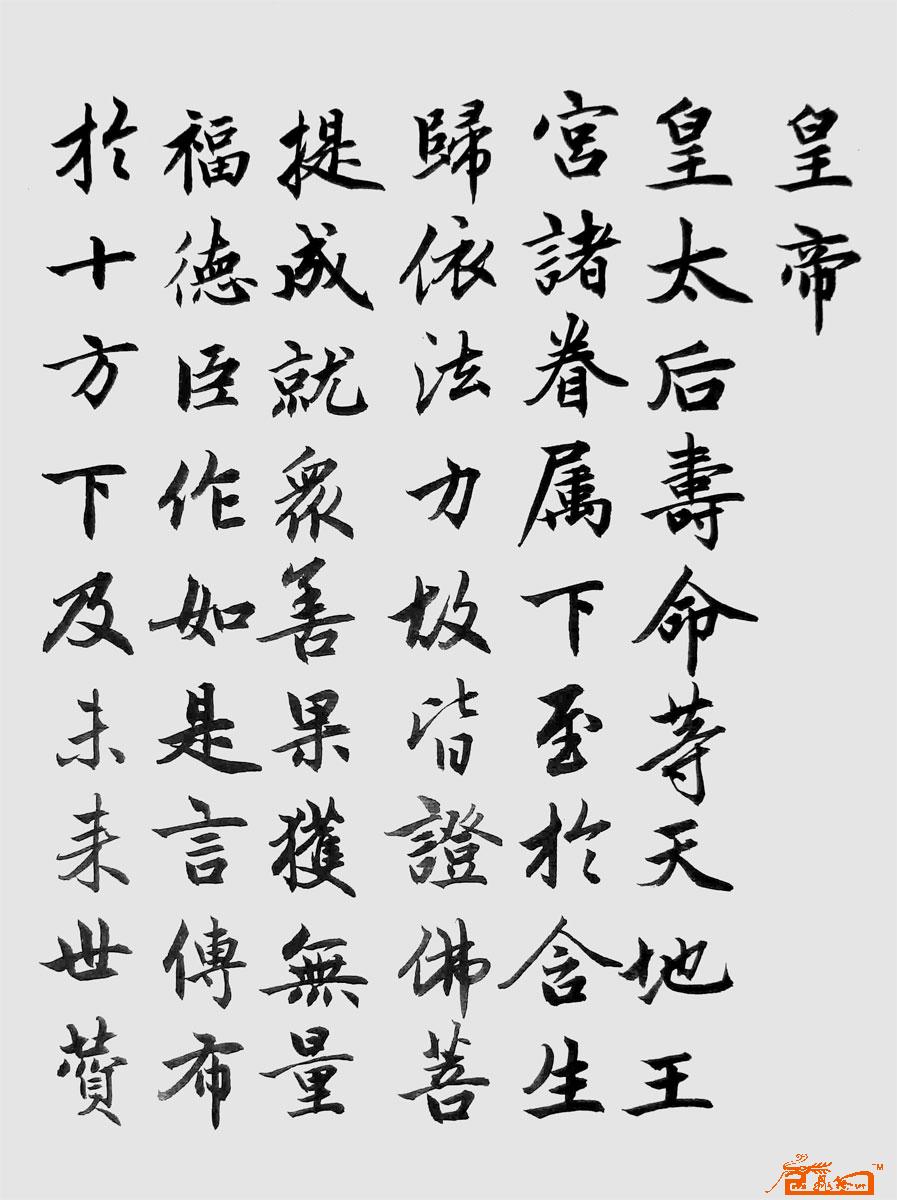 皇帝
皇太后壽命等天地王
宮諸眷属下至於含生
歸依法力故皆證佛菩
提成就眾善果獲無量
福德臣作如是言傳布
於十方下及未来世讚